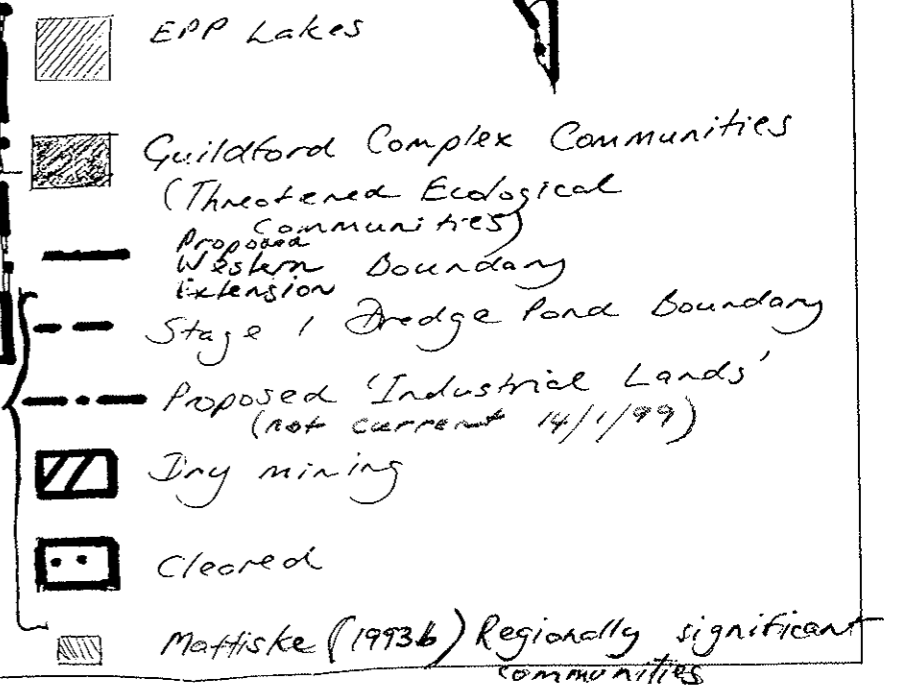 EPP Lakes
Guildford Complex Communities
(Threatened Ecological
Communities)
Proposed
Western Boundary
Extension
Stage 1 Dredge Pond Boundary
Proposed 'Industrial Lands'
(not current 14/1/99)
Dry mining
Cleared
Mattiske (1993b) Regionally significant
communities